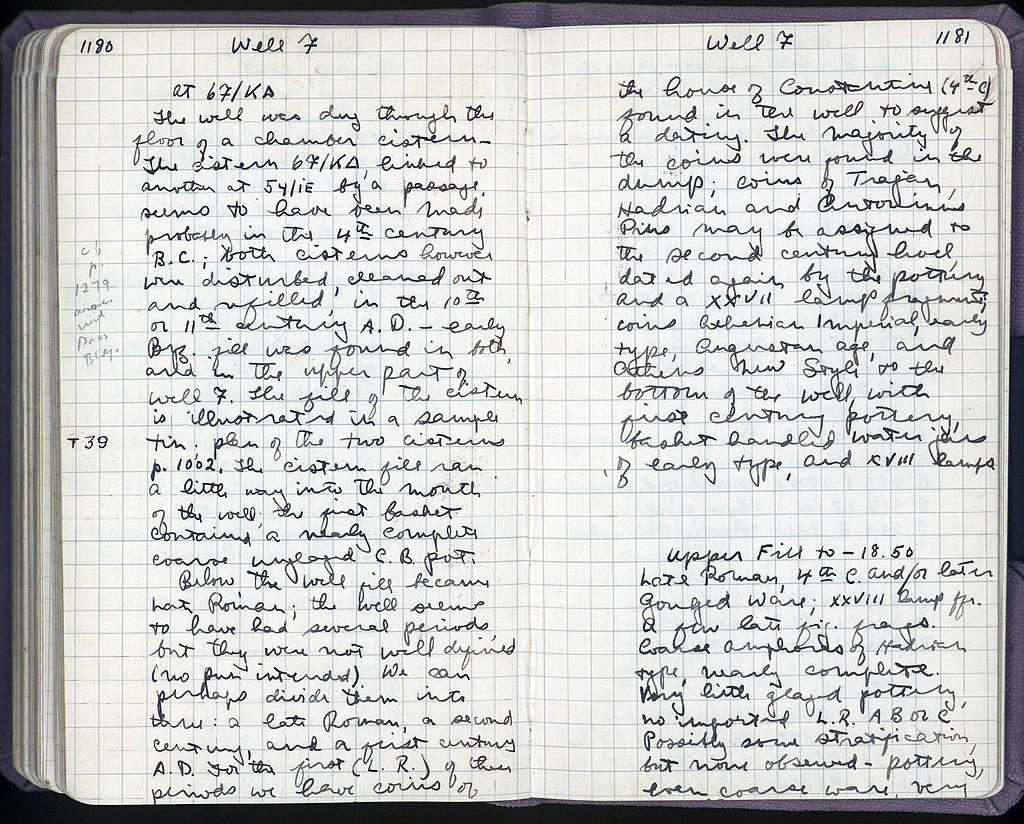 1180 Well 7
at 67/KA
The well was dug through the
floor of a chamber cistern.
The cistern 67/KA, linked to
another at 54/IE by a passage,
seems to have been made
probably in the 4th century
B.C.; both cisterns however
were disturbed, cleaned out
and refilled, in the 10th
or 11th century A.D. - early
Byz. fill was found in both,
and in the upper part of
well 7. The fill of the cistern
is illustrated in a sample
tin. plan of the two cisterns
p. 1002. The cistern fill ran
a little way into the mouth
of the well; the first basket
contained a nearly complete
coarse unglazed C.B. pot.
Below the well fill became
Late Roman; the well seems
to have had several periods,
but they were not well defined
(no pun intended). We can
perhaps divide them into
three: a late Roman, a second
century, and a first century
A.D. For the first (L.R.) of these
periods we have coins of
cf.
p.
1279
T 39
Well 7 1181
the house of Constantine (4th C)
found in the well to suggest
a dating. The majority of
the coins were found in the
dump; coins of Trajan,
Hadrian and Antoninus
Pius may be assigned to
the second century level
dated again by the pottery
and a XXVII lamp fragment;
coins Imperial, early
type, Augustan age, and
Athens New Style to the
bottom of the well, with
first century pottery,
basket handled water jars
of early type, and XVIII lamps
Upper Fill to - 18.50
Late Roman, 4th C. and/or later
Gouged Ware; XXVIII lamp fr.
A few late fig. frags.
Coarse amphoras of Hadrian
type, nearly complete.
Very little glazed pottery,
no imported L.R. A B or C
Possibly some stratification,
but none observed - pottery,
even coarse ware, very